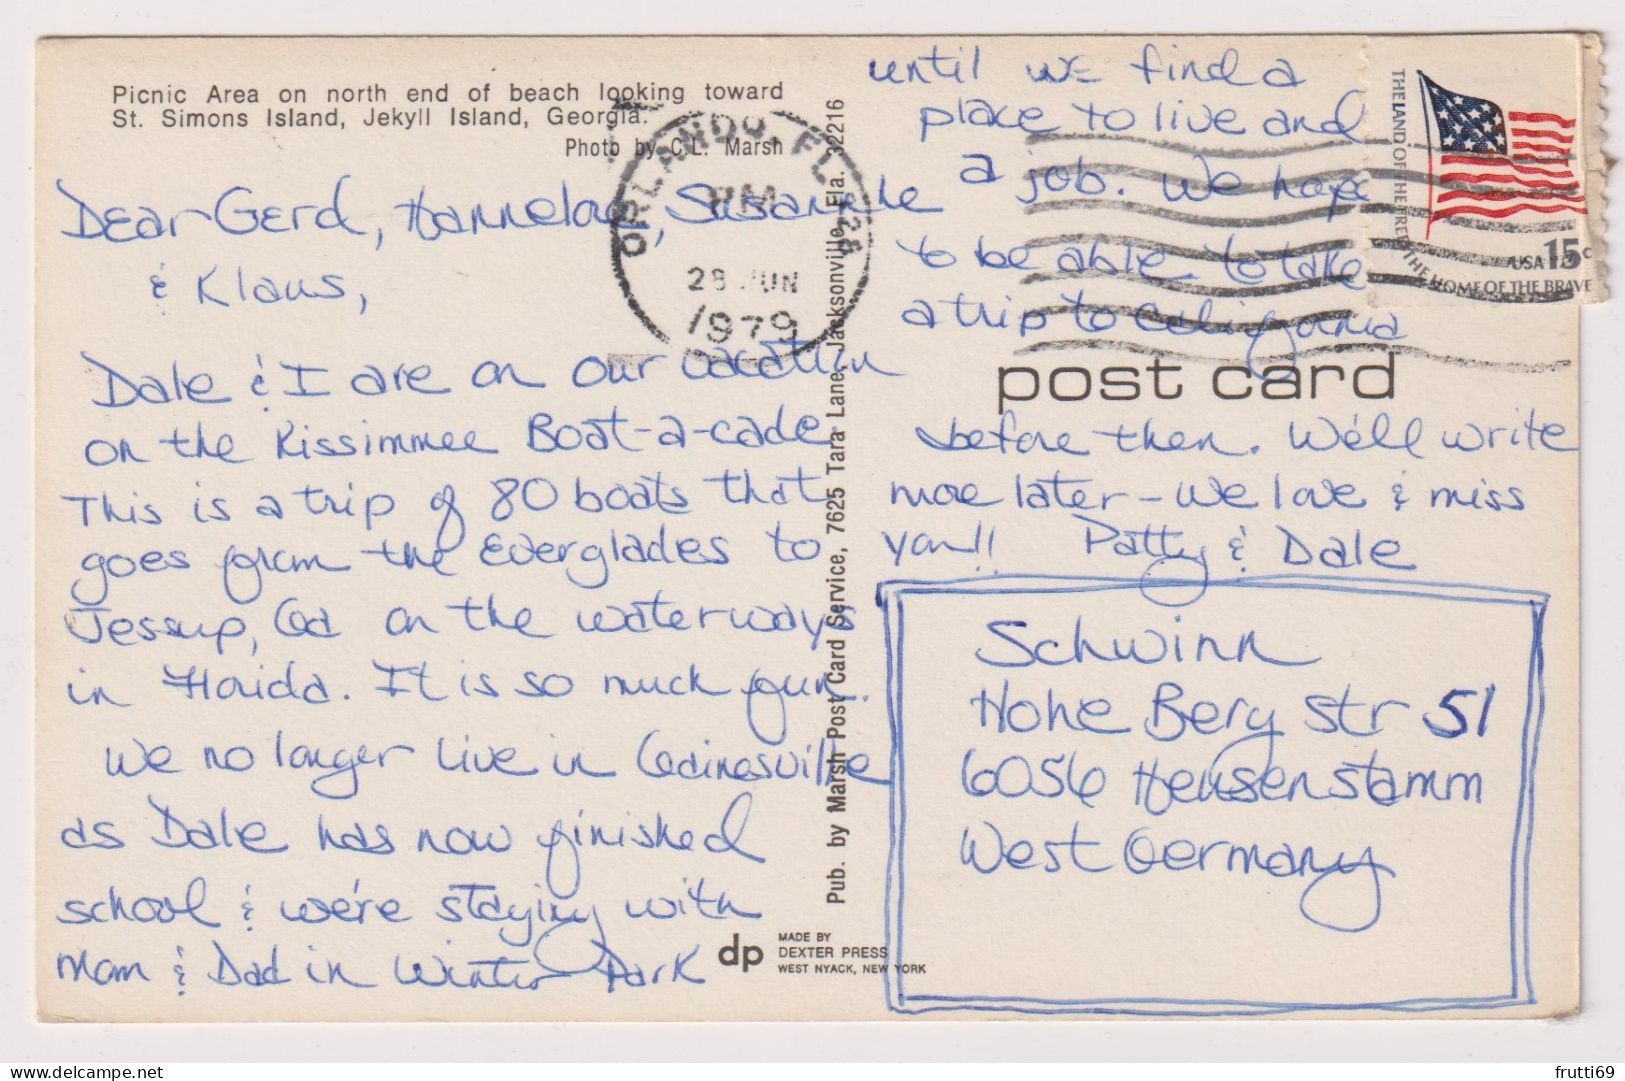 Picnic Area on north end of beach looking toward
St. Simons Island, Jekyll Island, Georgia.
Photo by C.L. Marsh
Dear Gerd, Hannelore, Susanne
& Klaus,
Dale & I are on our vacation
on the Kissimmee Boat-a-cade
This is a trip of 80 boats that
goes from the Everglades to
Jessup, Ga on the waterways
in Florida. It is so much fun.
We no longer live in Gainesville
as Dale has now finished
school & we're staying with
Mom & Dad in Winter Park
until we find a
place to live and
a job. We hope
to be able to take
a trip to California
before then. We'll write
more later - we love & miss
you!! Patty & Dale
ORLANDO, FL 328
PM
28 JUN
1979
THE LAND OF THE FREE THE HOME OF THE BRAVE
USA 15c
post card
Pub. by Marsh Post Card Service, 7625 Tara Lane, Jacksonville, Fla. 32216
dp
MADE BY
DEXTER PRESS
WEST NYACK, NEW YORK
Schwinn
Hohe Berg Str 51
6056 Heusenstamm
West Germany
frutti69